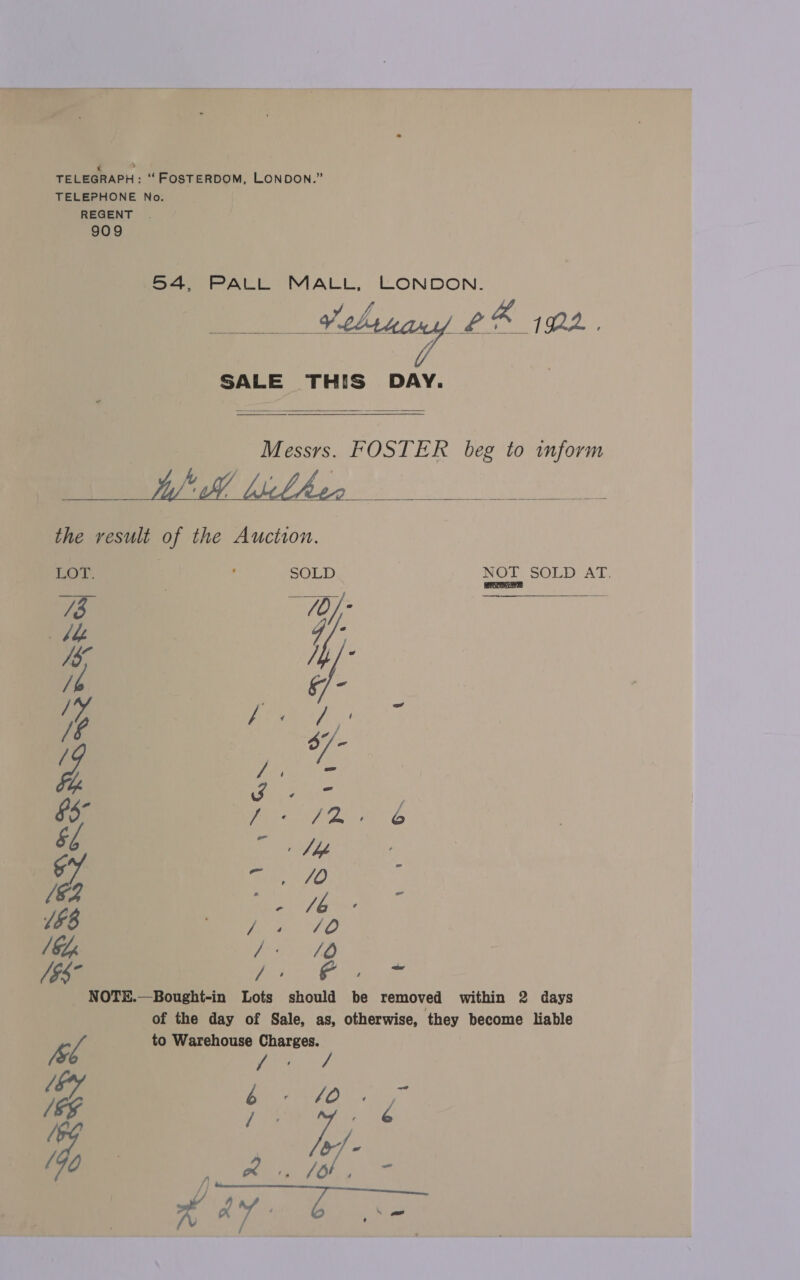 TELEGRAPH: "FOSTERDOM, LONDON."
TELEPHONE No.
REGENT
909
54, PALL MALL, LONDON.
February 8th 1922.
SALE THIS DAY.
Messrs. FOSTER beg to inform
the result of the Auction.
LOT. SOLD NOT SOLD AT.
13 10/-
14 9/-
15 14/-
16 8/-
17 1 . 1 . -
18 5/-
19 1 . -
84 3 . -
85 1 . 12 . 6
86 - . 14
87 - . 10 -
182 - 16 . -
183 1 . 10
184 1 . 10
185 1 . 8 . -
NOTE.—Bought-in Lots should be removed within 2 days
of the day of Sale, as, otherwise, they become liable
to Warehouse Charges.
186 1 . 1
187 6 . 10 . -
188 1 . 7 . 6
189
190 2 . 10 . -
£ 27 . 6 . -